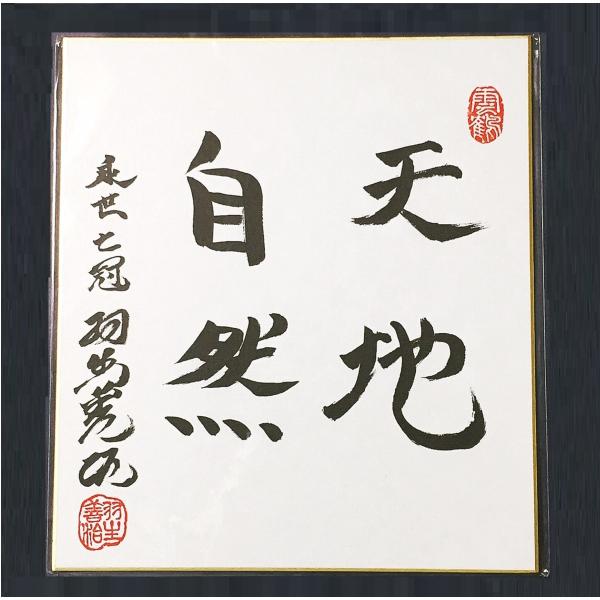 雲鶴
天地
自然
永世七冠 羽生善治
羽生
善治